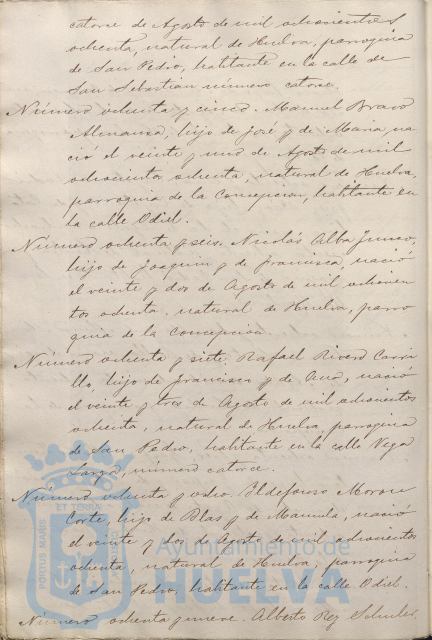 catorce de Agosto de mil ochocientos
ochenta, natural de Huelva, parroquia
de San Pedro, habitante en la calle de
San Sebastián número catorce.
Número ochenta y cinco. Manuel Bravo
Almansa, hijo de José y de María, na
ció el veinte y uno de Agosto de mil
ochocientos ochenta, natural de Huelva,
parroquia de la Concepcion, habitante en
la calle Odiel.
Número ochenta y seis. Nicolás Alba
hijo de Joaquin y de Francisca, nació
el veinte y dos de Agosto de mil ochocien
tos ochenta, natural de Huelva, parro
quia de la Concepcion.
Número ochenta y siete Rafael Rivero Carri
llo, hijo de Francisco y de Ana, nació
el veinte y tres de Agosto de mil ochocientos
ochenta, natural de Huelva, parroquia
de San Pedro, habitante en la calle Vega
Larga, número catorce.
Número ochenta y ocho. Ildefonso Moreu
Corte, hijo de Blas y de Manuela, nació
el veinte y dos de Agosto de mil ochocientos
ochenta, natural de Huelva, parroquia
de San Pedro, habitante en la calle Odiel.
Número ochenta y nueve. Alberto Rey
PORTUS MARIS
ET TERRÆ
CUSTODIA
Ayuntamiento de
HUELVA